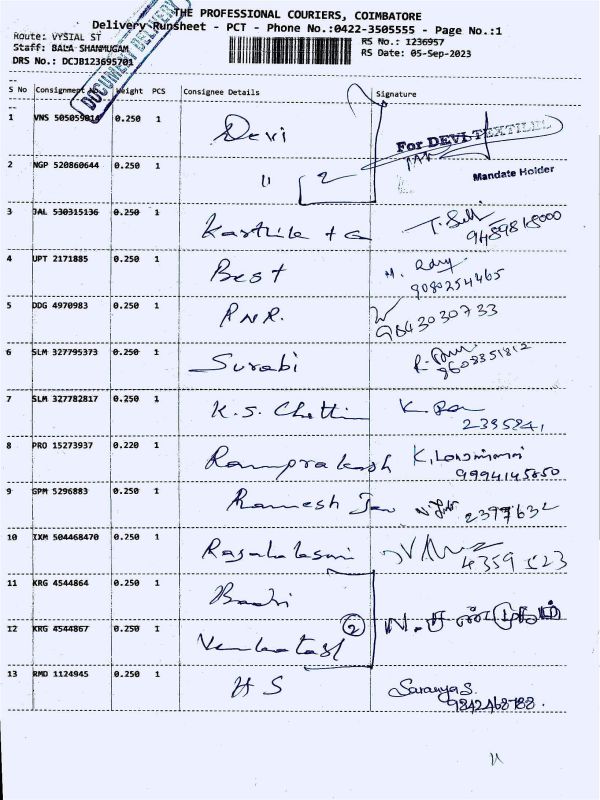 THE PROFESSIONAL COURIERS, COIMBATORE
Delivery Runsheet - PCT - Phone No.:0422-3505555 - Page No.:1
Route: VYSIAL ST
RS No.: 1236957
Staff: BALA SHANMUGAM
RS Date: 05-Sep-2023
DRS No.: DCJB123695701
DOCUMENT DELIVERY
S No Consignment No Weight PCS Consignee Details Signature
1 VNS 505059814 0.250 1 Devi For DEVI TEXTILES
2 NGP 520860644 0.250 1 " 2 Mandate Holder
3 JAL 530315136 0.250 1 Karthik + G
4 UPT 2171885 0.250 1 Best 9080254465
5 DDG 4970983 0.250 1 RNR. 9843030733
6 SLM 327795373 0.250 1 Surabi
7 SLM 327782817 0.250 1 K.S. Chetti
8 PRO 15273937 0.220 1 Ramprakash
9 GPM 5296883 0.250 1 Ramesh 2397632
10 IXM 504468470 0.250 1
11 KRG 4544864 0.250 1 Badri
12 KRG 4544867 0.250 1 2
13 RMD 1124945 0.250 1 HS Saranya S.
9842468788.